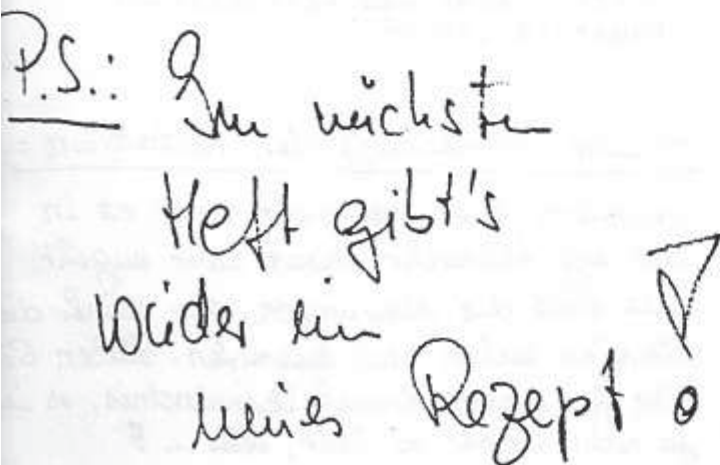 P.S.: Im nächsten
Heft gibt's
wieder ein
neues Rezept!